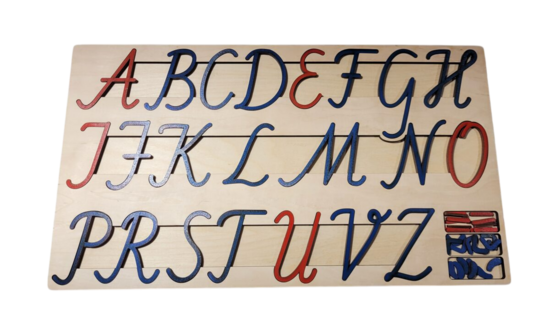 A B C D E F G H
I J K L M N O
P R S T U V Z